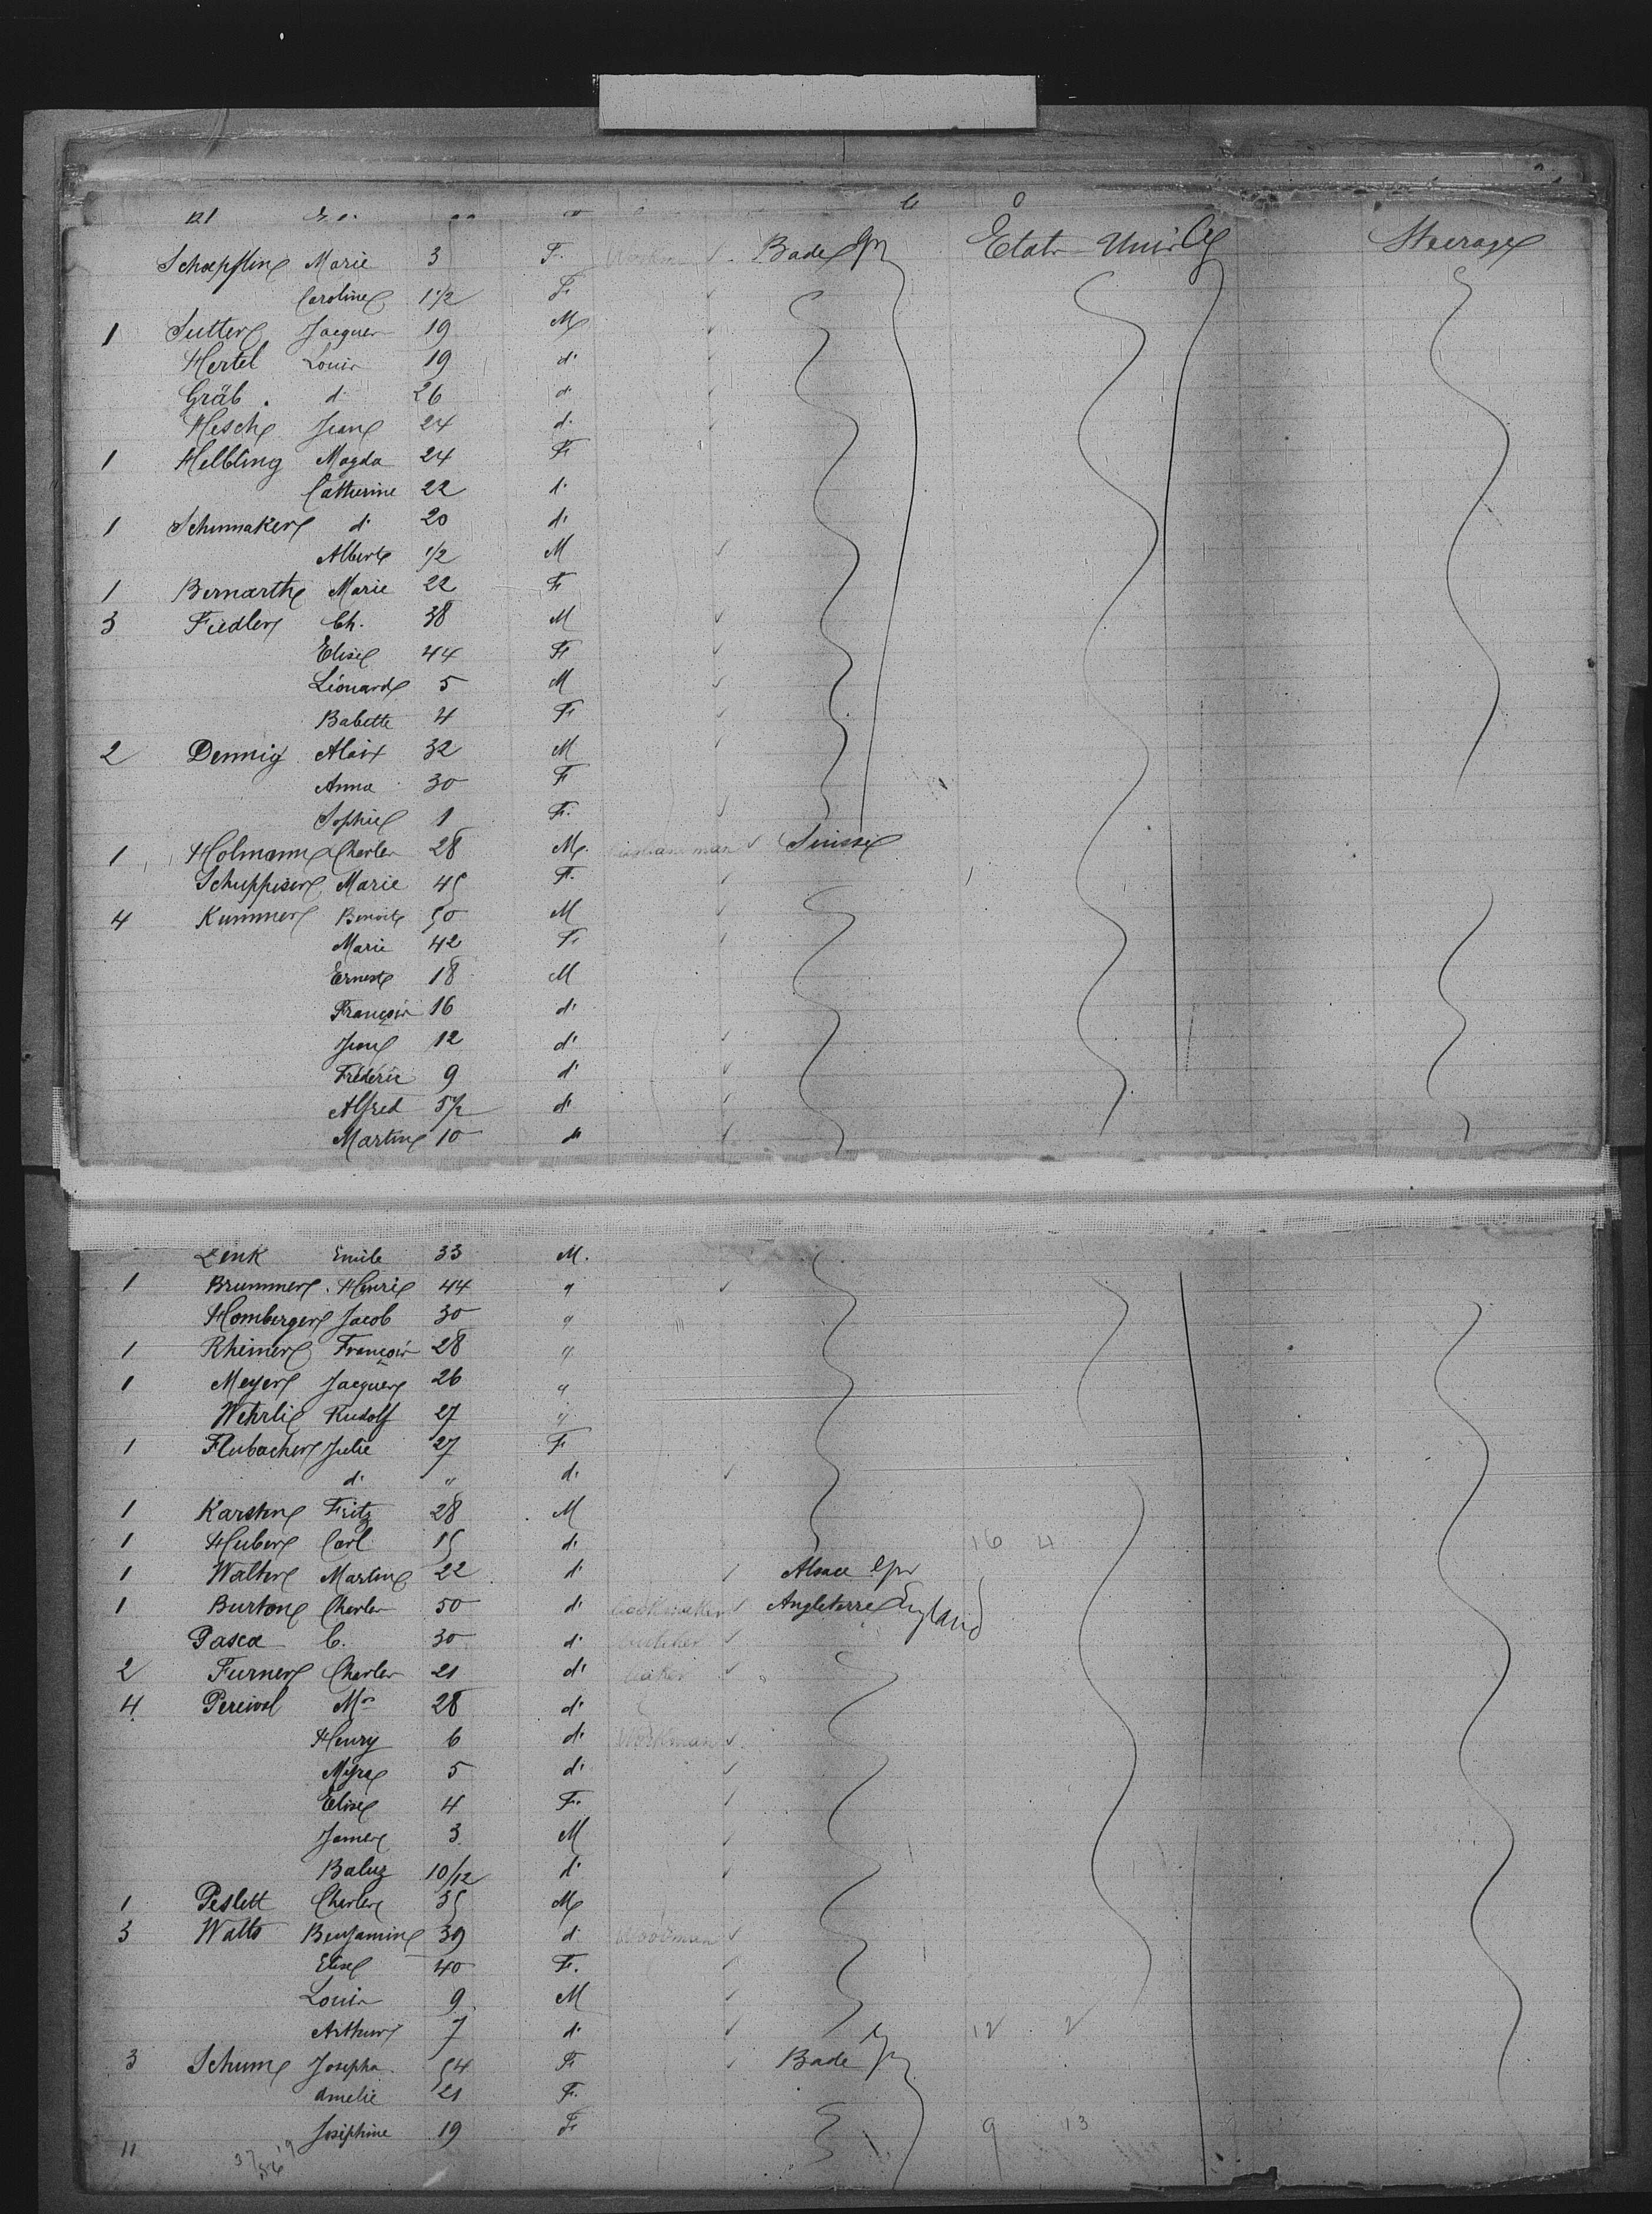 Schœpflin Marie 3 F. Bade Etats-Unis Steerage
Caroline 1 1/2 F.
1 Sutter Jacques 19 M
Hertel Louis 19 d°
Gräb. d° 26 d°
Hesch Jean 24 d°
1 Helbling Magda 24 F
Catherine 22 d°
1 Schumaker d° 20 d°
Albert 1/2 M
1 Bernarth Marie 22 F
3 Fiedler Ch. 38 M
Elise 44 F
Léonard 5 M
Babette 4 F
2 Dennig Aloix 32 M
Anna 30 F
Sophie 1 F.
1 Holmann Charles 28 M. Suisse
Schuppiser Marie 45 F.
4 Kummer Benoit 50 M
Marie 42 F.
Ernest 18 M
François 16 d°
Jean 12 d°
Fréderic 9 d°
Alfred 5 1/2 d°
Martin 10 d°
Zenk Emile 33 M.
1 Brummer Henri 44 "
Homberger Jacob 30 "
1 Rheiner François 28 "
1 Meyer Jacques 26 "
Wehrli Rudolf 27 "
1 Flubacher Julie 27 F
d° " d°
1 Karsten Fritz 28 M
1 Huber Carl 15 d° 16 4
1 Walter Martin 22 d° Alsace
1 Burton Charles 50 d° Angleterre England
Pasca C. 30 d° butcher
2 Furner Charles 21 d° baker
4 Percival Mr 28 d°
Henry 6 d° Workman
Myra 5 d°
Elise 4 F.
James 3 M
Baluz 10/12 d°
1 Peslett Charles 35 M
3 Walto Benjamin 39 d°
Elise 40 F.
Louis 9 M
Arthur 7 d° 12 2
3 Schum Josepha 54 F Bade
Amelie 21 F.
Joséphine 19 F 9 13
11